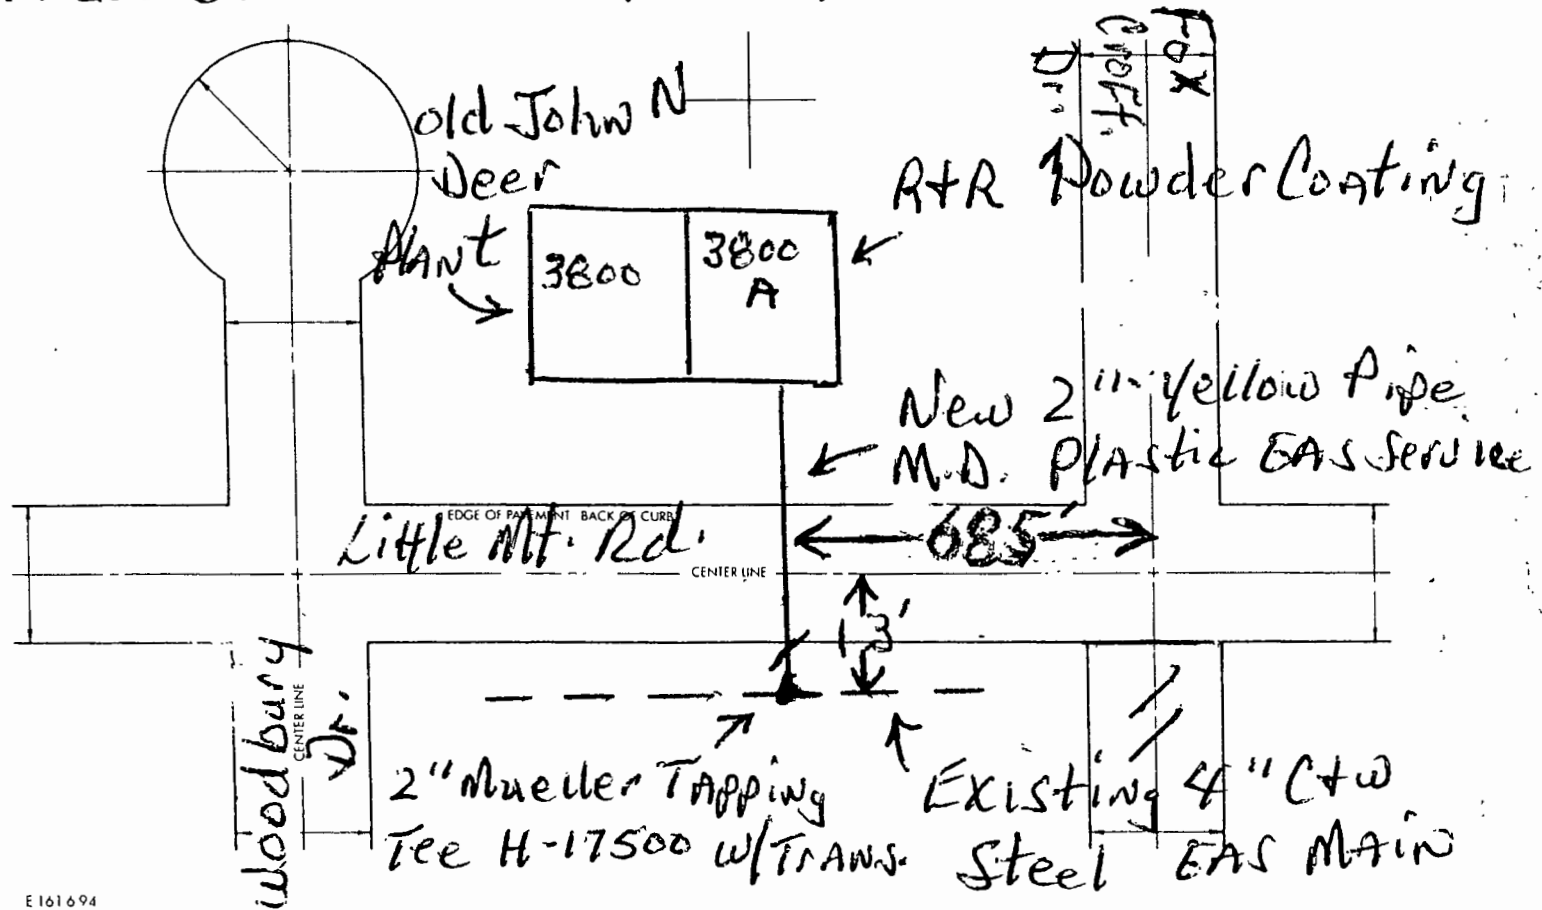 Fox
Croft.
Dr.
old John
Deer
Plant
N
R+R Powder Coating
3800
3800
A
New 2" Yellow Pipe
M.D. Plastic GAS Service
EDGE OF PAVEMENT BACK OF CURB
Little Mt. Rd.
685'
CENTER LINE
13'
Woodbury
Dr.
CENTER LINE
2" Mueller Tapping
Tee H-17500 W/TRANS.
Existing 4" C+W
Steel GAS MAIN
E161694